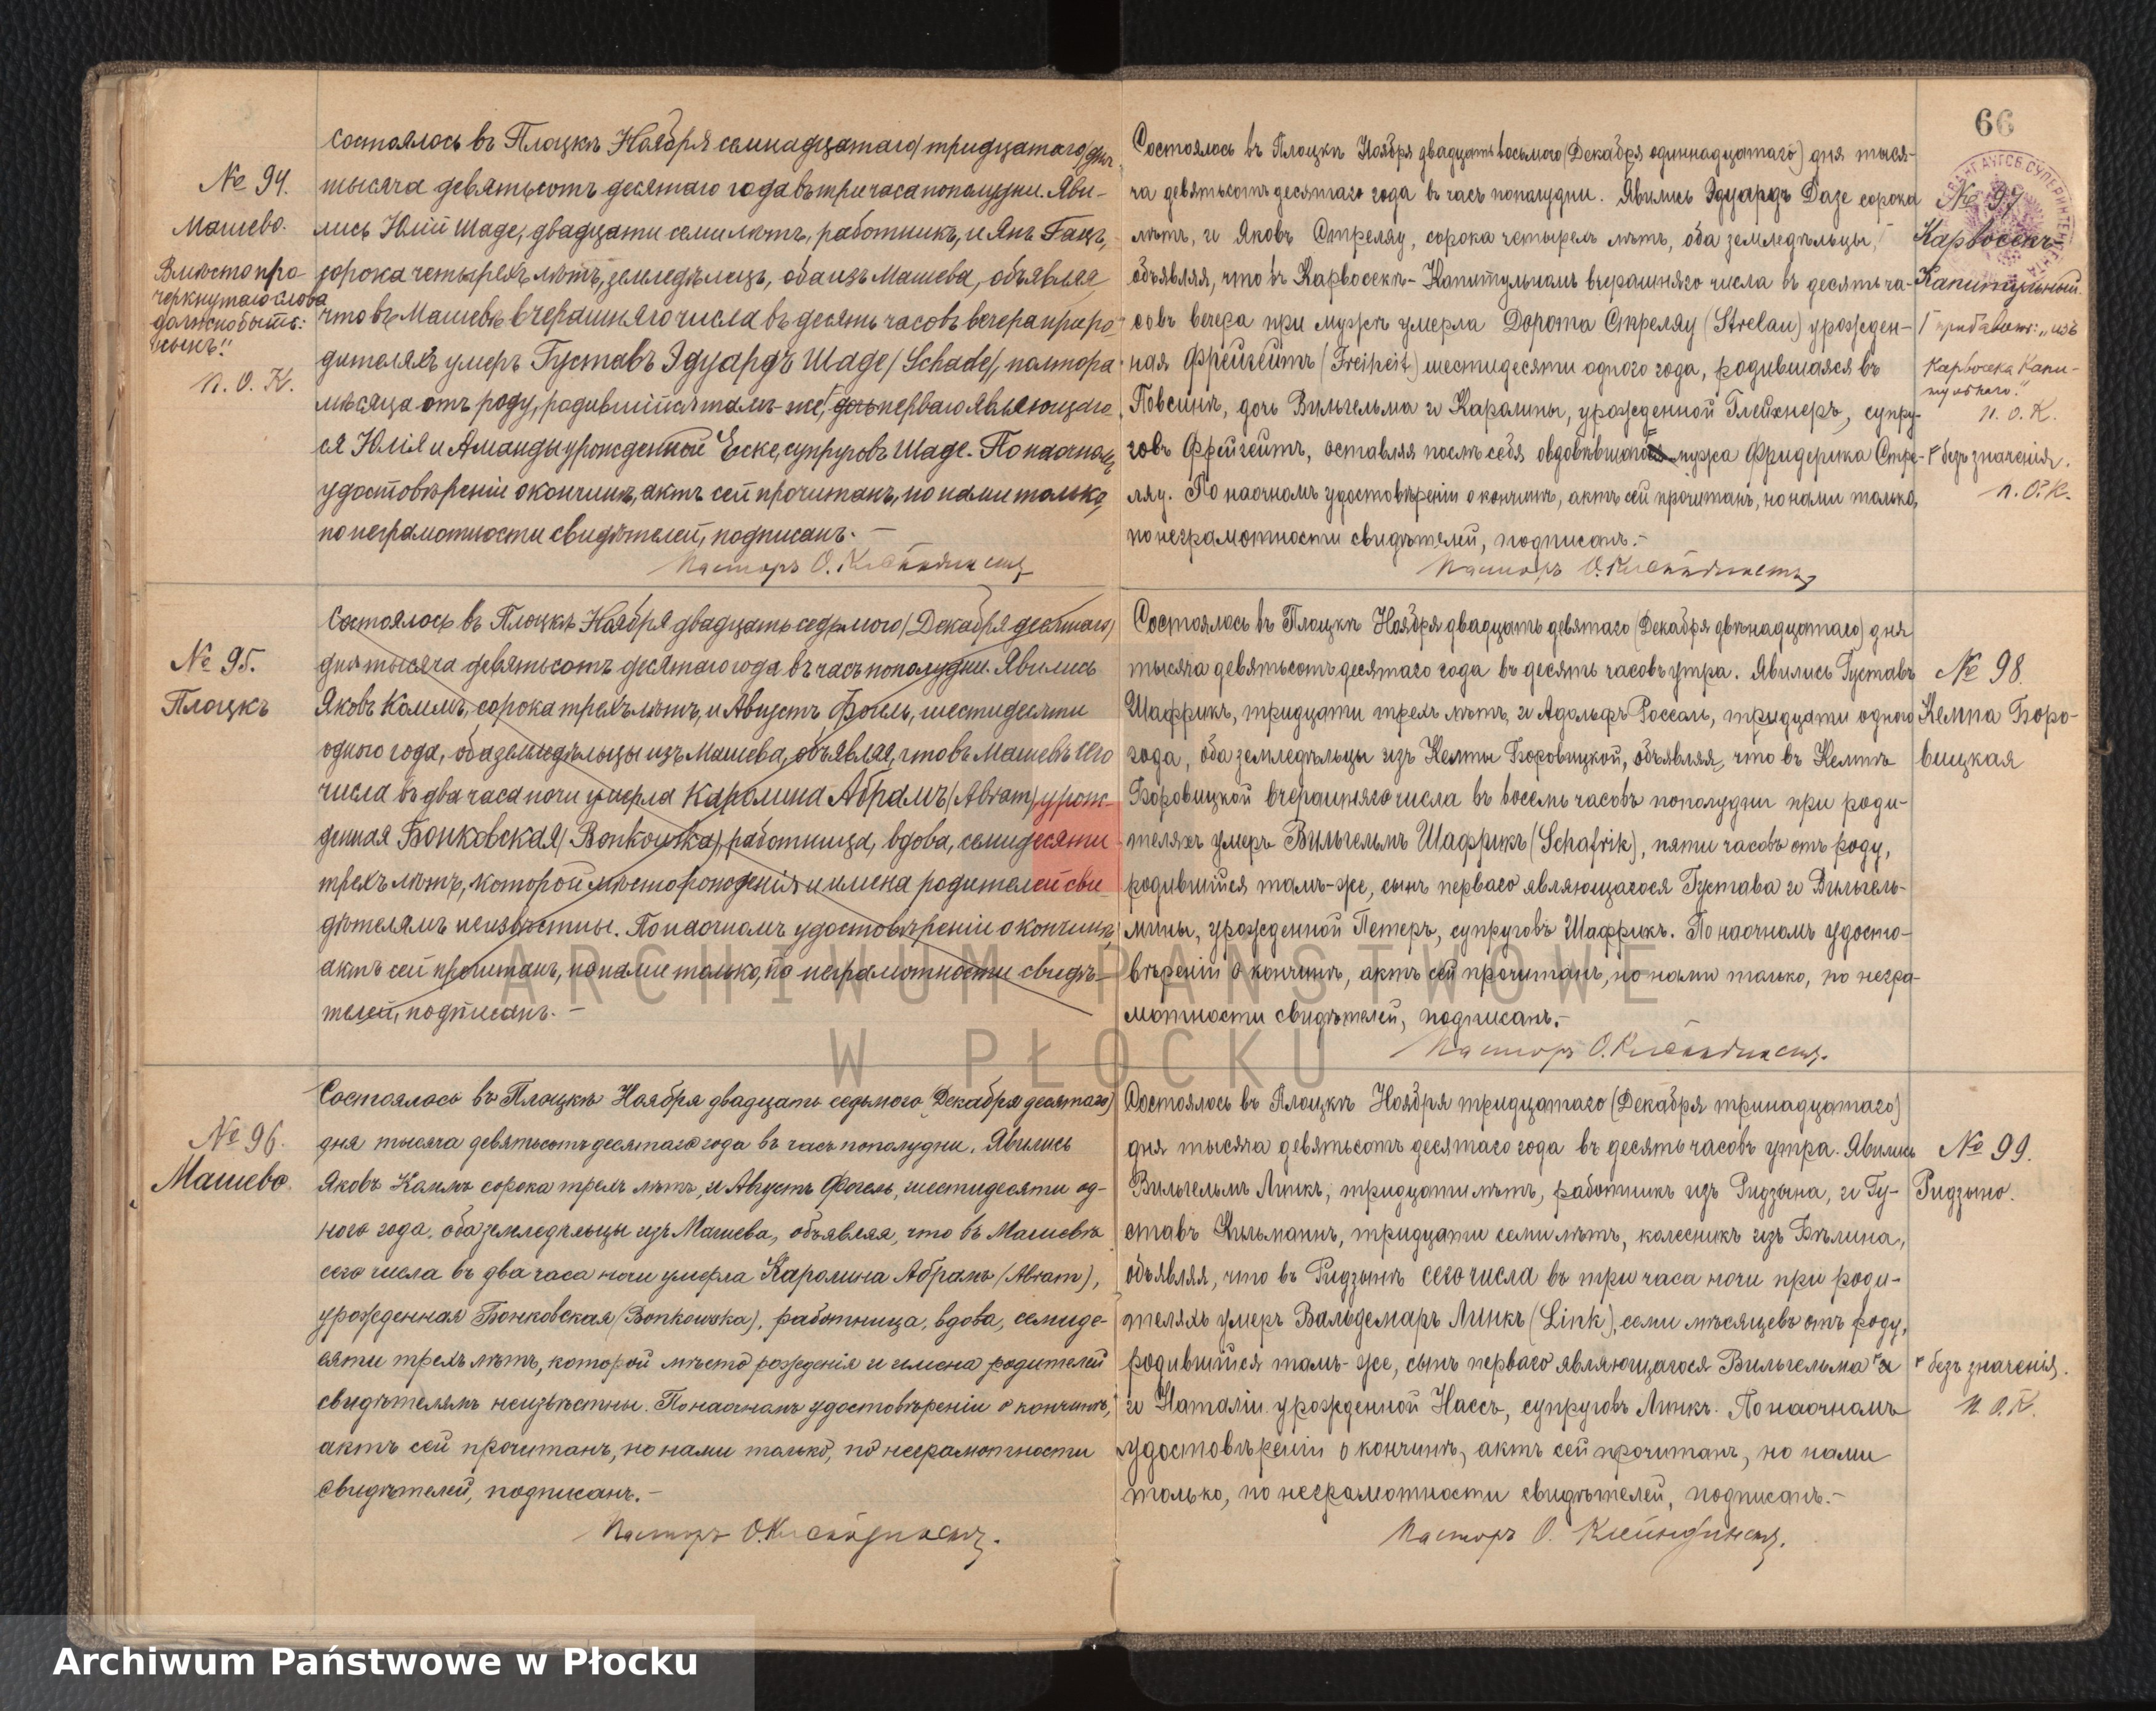 № 94.
Машево.
Вместо про-
черкнутаго слова
должно быть:
„сынъ“!
П. О. К.
Состоялось въ Плоцкѣ Ноября семнадцатаго (тридцатаго) дня
тысяча девятьсотъ десятаго года въ три часа пополудни. Яви-
лись Юлій Шаде, двадцати семи лѣтъ, работникъ, и Янъ Гацъ,
сорока четырехъ лѣтъ, земледѣлецъ, оба изъ Машева, объявляя,
что въ Машевѣ вчерашняго числа въ десять часовъ вечера при ро-
дителяхъ умеръ Густавъ Эдуардъ Шаде (Schade), полтора
мѣсяца отъ роду, родившійся тамъ-же, дочь перваго являющаго-
ся Юлія и Аманды урожденной Еске, супруговъ Шаде. По наочномъ
удостовѣреніи о кончинѣ, актъ сей прочитанъ, но нами только,
по неграмотности свидѣтелей, подписанъ. —
Пасторъ О.
№ 95.
Плоцкъ
Состоялось въ Плоцкѣ Ноября двадцать седьмого (Декабря десятаго)
дня тысяча девятьсотъ десятаго года въ часъ пополудни. Явились
Яковъ Каимъ, сорока трехъ лѣтъ, и Августъ Фогель, шестидесяти
одного года, оба земледѣльцы изъ Машева, объявляя, что въ Машевѣ сего
числа въ два часа ночи умерла Каролина Абрамъ (Abram) урож-
денная Бонковская (Bonkowska), работница, вдова, семидесяти
трехъ лѣтъ, которой мѣсто рожденія и имена родителей сви-
дѣтелямъ неизвѣстны. По наочномъ удостовѣреніи о кончинѣ
актъ сей прочитанъ, но нами только, по неграмотности свидѣ-
телей, подписанъ. —
№ 96.
Машево.
Состоялось въ Плоцкѣ Ноября двадцать седьмого (Декабря десятаго)
дня тысяча девятьсотъ десятаго года въ часъ пополудни. Явились
Яковъ Каимъ сорока трехъ лѣтъ, и Августъ Фогель, шестидесяти од-
ного года, оба земледѣльцы изъ Машева, объявляя, что въ Машевѣ
сего числа въ два часа ночи умерла Каролина Абрамъ (Abram),
урожденная Бонковская (Bonkowska), работница, вдова, семиде-
сяти трехъ лѣтъ, которой мѣсто рожденія и имена родителей
свидѣтелямъ неизвѣстны. По наочномъ удостовѣреніи о кончинѣ,
актъ сей прочитанъ, но нами только, по неграмотности
свидѣтелей, подписанъ. —
Пасторъ О.
66
№ 97
Карвосекъ
Капитульный.
Г прибавить: „изъ
Карвосека Капи-
тульнаго“.
П. О. К.
Г безъ значенія.
П. О. К.
Состоялось въ Плоцкѣ Ноября двадцать восьмого (Декабря одиннадцатаго) дня тыся-
ча девятьсотъ десятаго года въ часъ пополудни. Явились Эдуардъ Дазе сорока
лѣтъ, и Яковъ Стреляу, сорока четырехъ лѣтъ, оба земледѣльцы, Г
объявляя, что въ Карвосекѣ-Капитульномъ вчерашняго числа въ десять ча-
совъ вечера при мужѣ умерла Дорота Стреляу (Strelau) урожден-
ная Фрейгейтъ (Freiheit) шестидесяти одного года, родившаяся въ
Повсинѣ, дочь Вильгельма и Каролины, урожденной Глейхнеръ, супру-
говъ Фрейгейтъ, оставляя послѣ себя овдовѣвшаго мужа Фридерика Стре-
ляу. По наочномъ удостовѣреніи о кончинѣ, актъ сей прочитанъ, но нами только,
по неграмотности свидѣтелей, подписанъ. —
Пасторъ О.
№ 98.
Кемпа Боро-
вицкая
Состоялось въ Плоцкѣ Ноября двадцать девятаго (Декабря двѣнадцатаго) дня
тысяча девятьсотъ десятаго года въ десять часовъ утра. Явились Густавъ
Шаффрикъ, тридцати трехъ лѣтъ, и Адольфъ Россоль, тридцати одного
года, оба земледѣльцы изъ Кемпы Боровицкой, объявляя, что въ Кемпѣ
Боровицкой вчерашняго числа въ восемь часовъ пополудни при роди-
теляхъ умеръ Вильгельмъ Шаффрикъ (Schafrik), пяти часовъ отъ роду,
родившійся тамъ-же, сынъ перваго являющагося Густава и Вильгель-
мины, урожденной Петеръ, супруговъ Шаффрикъ. По наочномъ удосто-
вѣреніи о кончинѣ, актъ сей прочитанъ, но нами только, по негра-
мотности свидѣтелей, подписанъ. —
Пасторъ О.
№ 99.
Гидзыно.
Г безъ значенія.
П. О. К.
Состоялось въ Плоцкѣ Ноября тридцатаго (Декабря тринадцатаго)
дня тысяча девятьсотъ десятаго года въ десять часовъ утра. Явились
Вильгельмъ Линкъ, тридцати лѣтъ, работникъ изъ Гидзына, и Гу-
ставъ Кильманнъ, тридцати семи лѣтъ, колесникъ изъ Бѣлина,
объявляя, что въ Гидзынѣ сего числа въ три часа ночи при роди-
теляхъ умеръ Вальдемаръ Линкъ (Link), семи мѣсяцевъ отъ роду,
родившійся тамъ-же, сынъ перваго являющагося Вильгельма Г и
и Наталіи урожденной Нассъ, супруговъ Линкъ. По наочномъ
удостовѣреніи о кончинѣ, актъ сей прочитанъ, но нами
только, по неграмотности свидѣтелей, подписанъ. —
Пасторъ О.
ARCHIWUM PAŃSTWOWE
W PŁOCKU
Archiwum Państwowe w Płocku